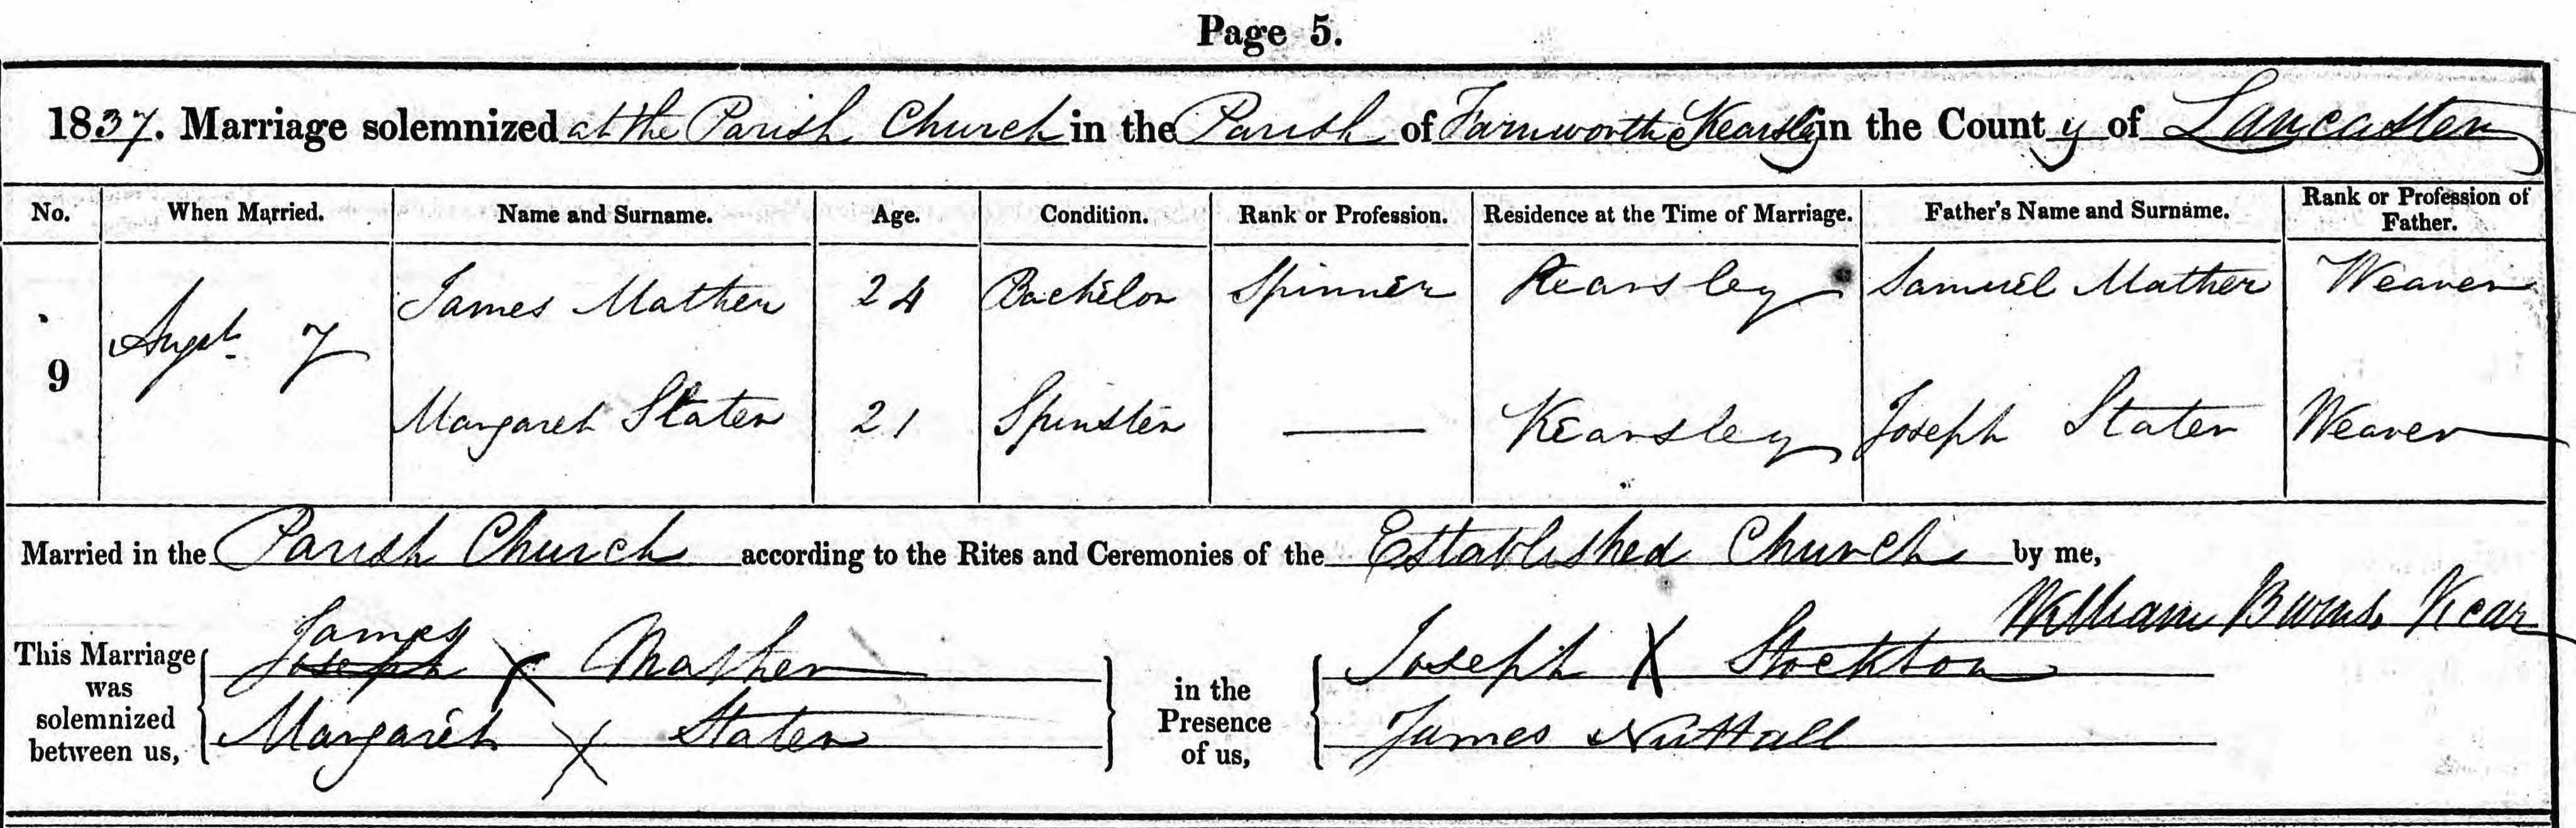 Page 5.
1837. Marriage solemnized at the Parish Church in the Parish of Farnworth & Kearsley in the County of Lancaster
No. When Married. Name and Surname. Age. Condition. Rank or Profession. Residence at the Time of Marriage. Father's Name and Surname. Rank or Profession of Father.
James Mather 24 Bachelor Spinner Kearsley Samuel Mather Weaver
9 Augst. 7
Margaret Staten 21 Spinster — Kearsley Joseph Staten Weaver
Married in the Parish Church according to the Rites and Ceremonies of the Established Church by me,
William Burns Vicar
This Marriage was solemnized between us,
James
Joseph X Mather
Margaret X Staten
in the Presence of us,
Joseph X Stockton
James Nuttall